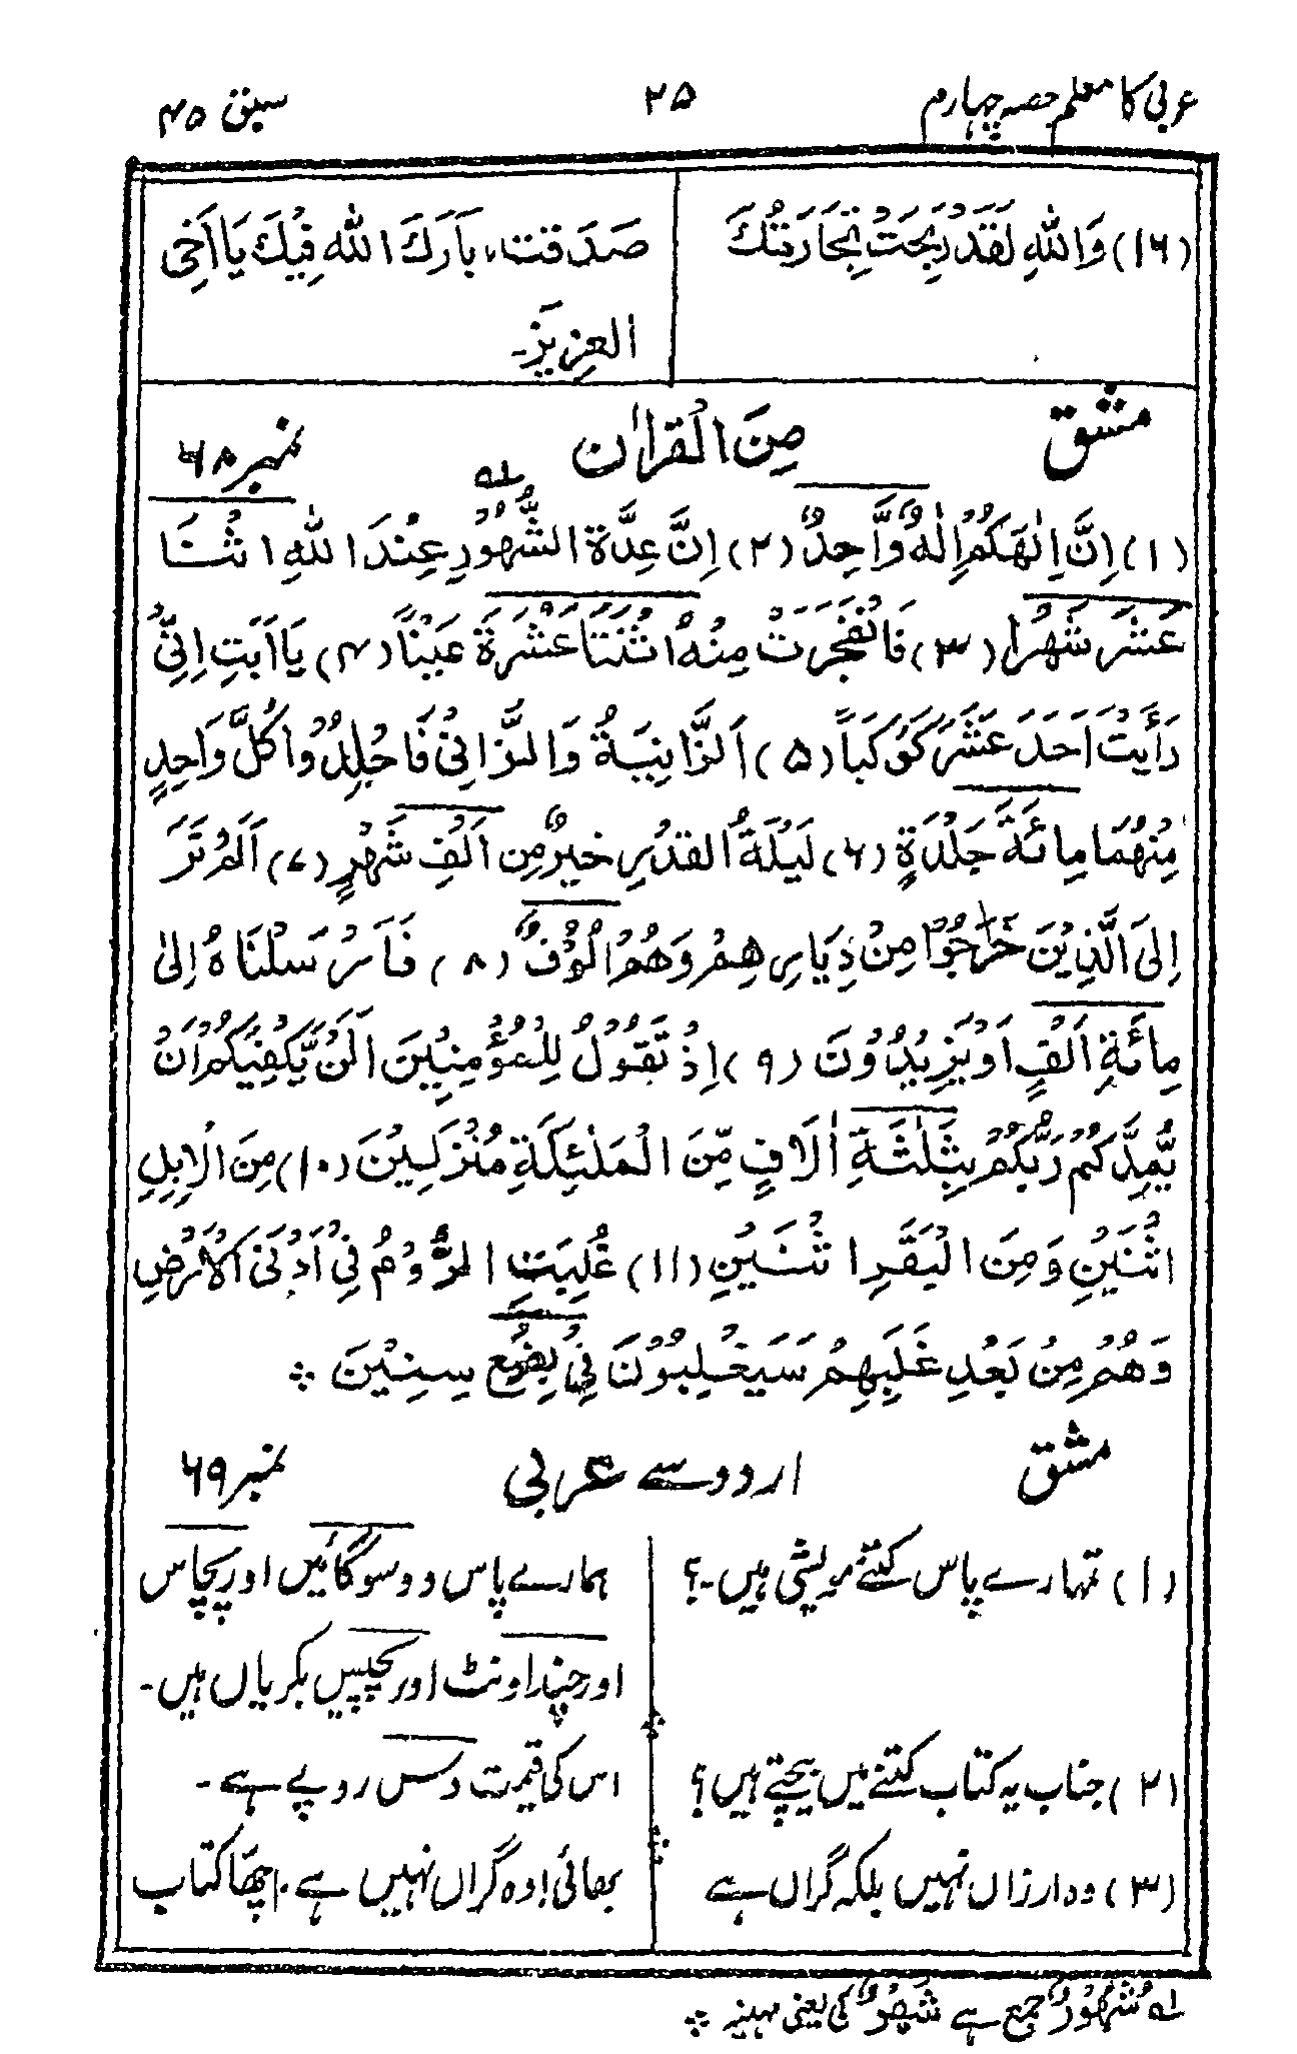 عربی کا معلم حصہ چہارم ۲۵ سبق ۴۵
(۱۶) وَاللهِ لَقَدْ رَبِحَتْ تِجَارَتُكَ صَدَقْتَ، بَارَكَ اللهُ فِيْكَ يَا اَخِى
العزيزَ۔
مشق مِنَ الْقُراٰن نمبر ۶۸
(۱) اِنَّ اِلٰهَكُمْ اِلٰهٌ وَّاحِدٌ (۲) اِنَّ عِدَّةَ الشُّهُوْرِ ؎۱ عِنْدَ اللهِ اثْنَا
عَشَرَ شَهْرًا (۳) فَانْفَجَرَتْ مِنْهُ اثْنَتَا عَشْرَةَ عَيْنًا (۴) يَا اَبَتِ اِنِّىْ
رَأَيْتُ اَحَدَ عَشَرَ كَوْكَبًا (۵) اَلزَّانِيَةُ وَالزَّانِىْ فَاجْلِدُوْا كُلَّ وَاحِدٍ
مِّنْهُمَا مِائَةَ جَلْدَةٍ (۶) لَيْلَةُ القدْرِ خيرٌ مِّن اَلْفِ شَهْرٍ (۷) اَلَمْ تَرَ
اِلىَ الَّذِيْنَ خَرَجُوْا مِنْ دِيَارِهِمْ وَهُمْ اُلُوْفٌ (۸) فَاَرْسَلْنَاهُ اِلىٰ
مِائَةِ اَلْفٍ اَوْ يَزِيْدُوْنَ (۹) اِذْ تَقُوْلُ لِلْمُؤْمِنِيْنَ اَلَنْ يَّكْفِيَكُمْ اَنْ
يُّمِدَّكُمْ رَبُّكُمْ بِثَلٰثَةِ اٰلَافٍ مِّنَ الْمَلٰئِكَةِ مُنْزَلِيْنَ (۱۰) مِنَ الْاِبِلِ
اثْنَيْنِ وَمِنَ الْبَقَرِ اثْنَيْنِ (۱۱) غُلِبَتِ الرُّوْمُ فِىْ اَدْنَى الْاَرْضِ
وَهُمْ مِنْ بَعْدِ غَلَبِهِمْ سَيَغْلِبُوْنَ فِىْ بِضْعِ سِنِيْنَ ؞
مشق اردو سے عربی نمبر ۶۹
(۱) تمہارے پاس کتنے مویشی ہیں۔؟ ہمارے پاس دو سو گائیں اور پچاس
اور چند اونٹ اور پچیس بکریاں ہیں۔
(۲) جناب یہ کتاب کتنے میں بیچتے ہیں؟ اس کی قیمت دس روپے ہے۔
(۳) وہ ارزاں نہیں بلکہ گراں ہے بھائی! وہ گراں نہیں ہے۔ اچھا کتاب
؎۱ شُهُوْرٌ جمع ہے شَهْرٌ کی یعنی مہینہ ؞